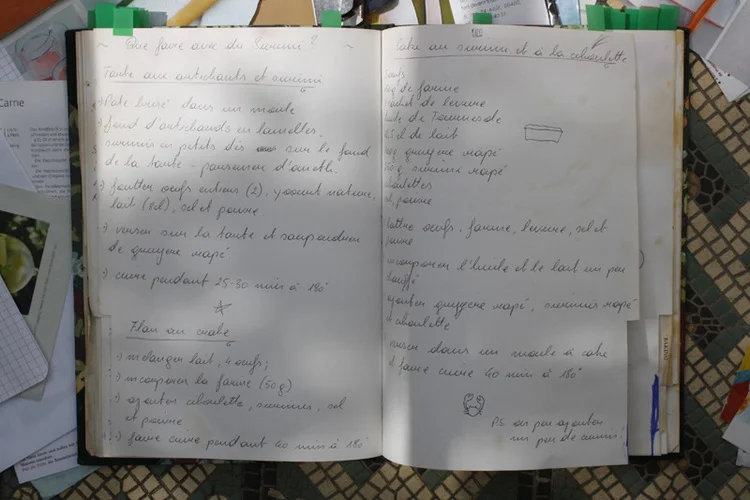 ~ Que faire avec du Surimi ? ~
Tarte aux artichauts et surimi
Pâte brisé dans un moule
fond d'artichauds en lamelles,
surimis en petits dés sur le fond
de la tarte - parsemer d'aneth.
fouetter oeufs entiers (2), yaourt nature,
lait (8cl), sel et poivre
verser sur la tarte et saupoudrer
de gruyère rapé
cuire pendant 25-30 min à 180°
Flan au crabe
mélanger lait, 4 oeufs;
incorporer la farine (50g)
ajouter ciboulette, surimis, sel
et poivre
faire cuire pendant 40 min à 180°
Cake au surimi et à la ciboulette
oeufs
g de farine
sachet de levure
huile de Tournesol
cl de lait
g gruyère rapé
g surimis rapé
ciboulettes
sel, poivre
Battre oeufs, farine, levure, sel et
poivre
incorporer l'huile et le lait un peu
chauffé
ajouter gruyère rapé, surimis rapé
et ciboulette
verser dans un moule à cake
et faire cuire 40 min à 180°
PS. on peu ajouter
un peu de cumin!
Carne